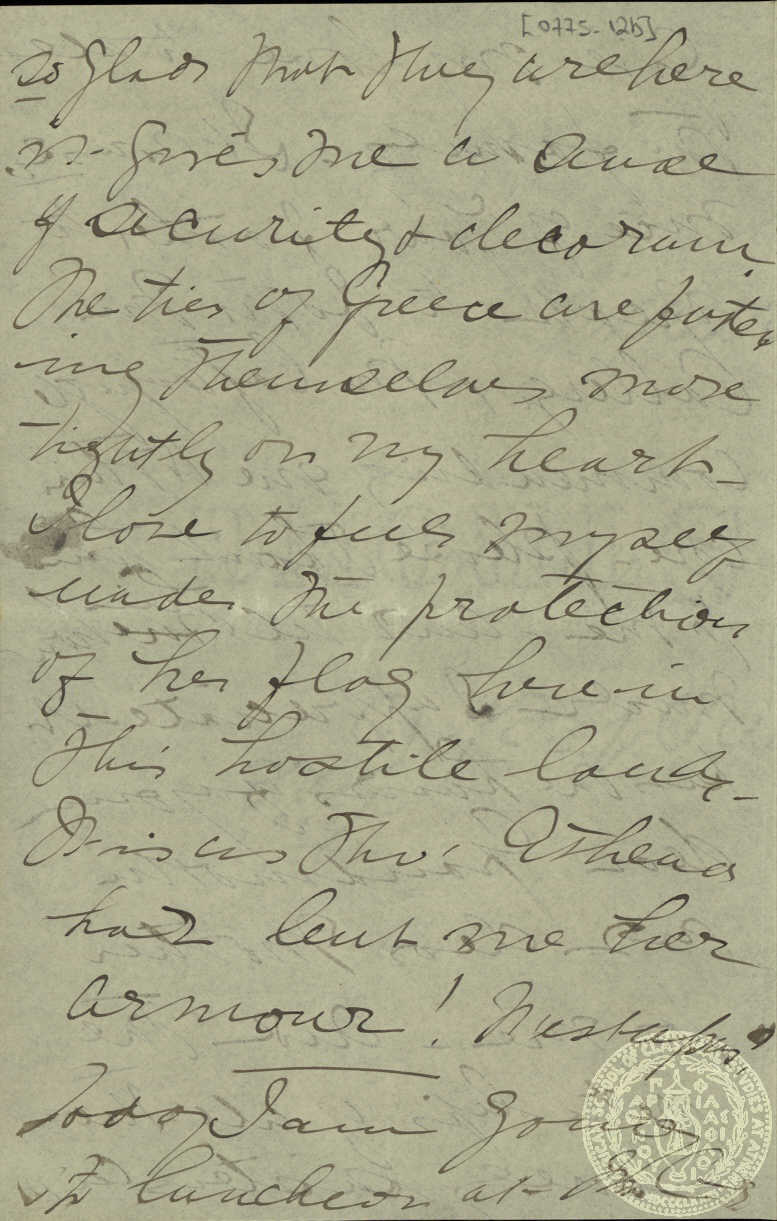 [0775-12b]
so glad that they are here
it gives me a sense
of security & decorum.
The ties of Greece are fasten
ing themselves more
tightly on my heart -
I love to feel myself
under the protection
of her flag here in
this hostile land -
It is as tho' Athena
had lent me her
armour!
Today I am going
to luncheon at